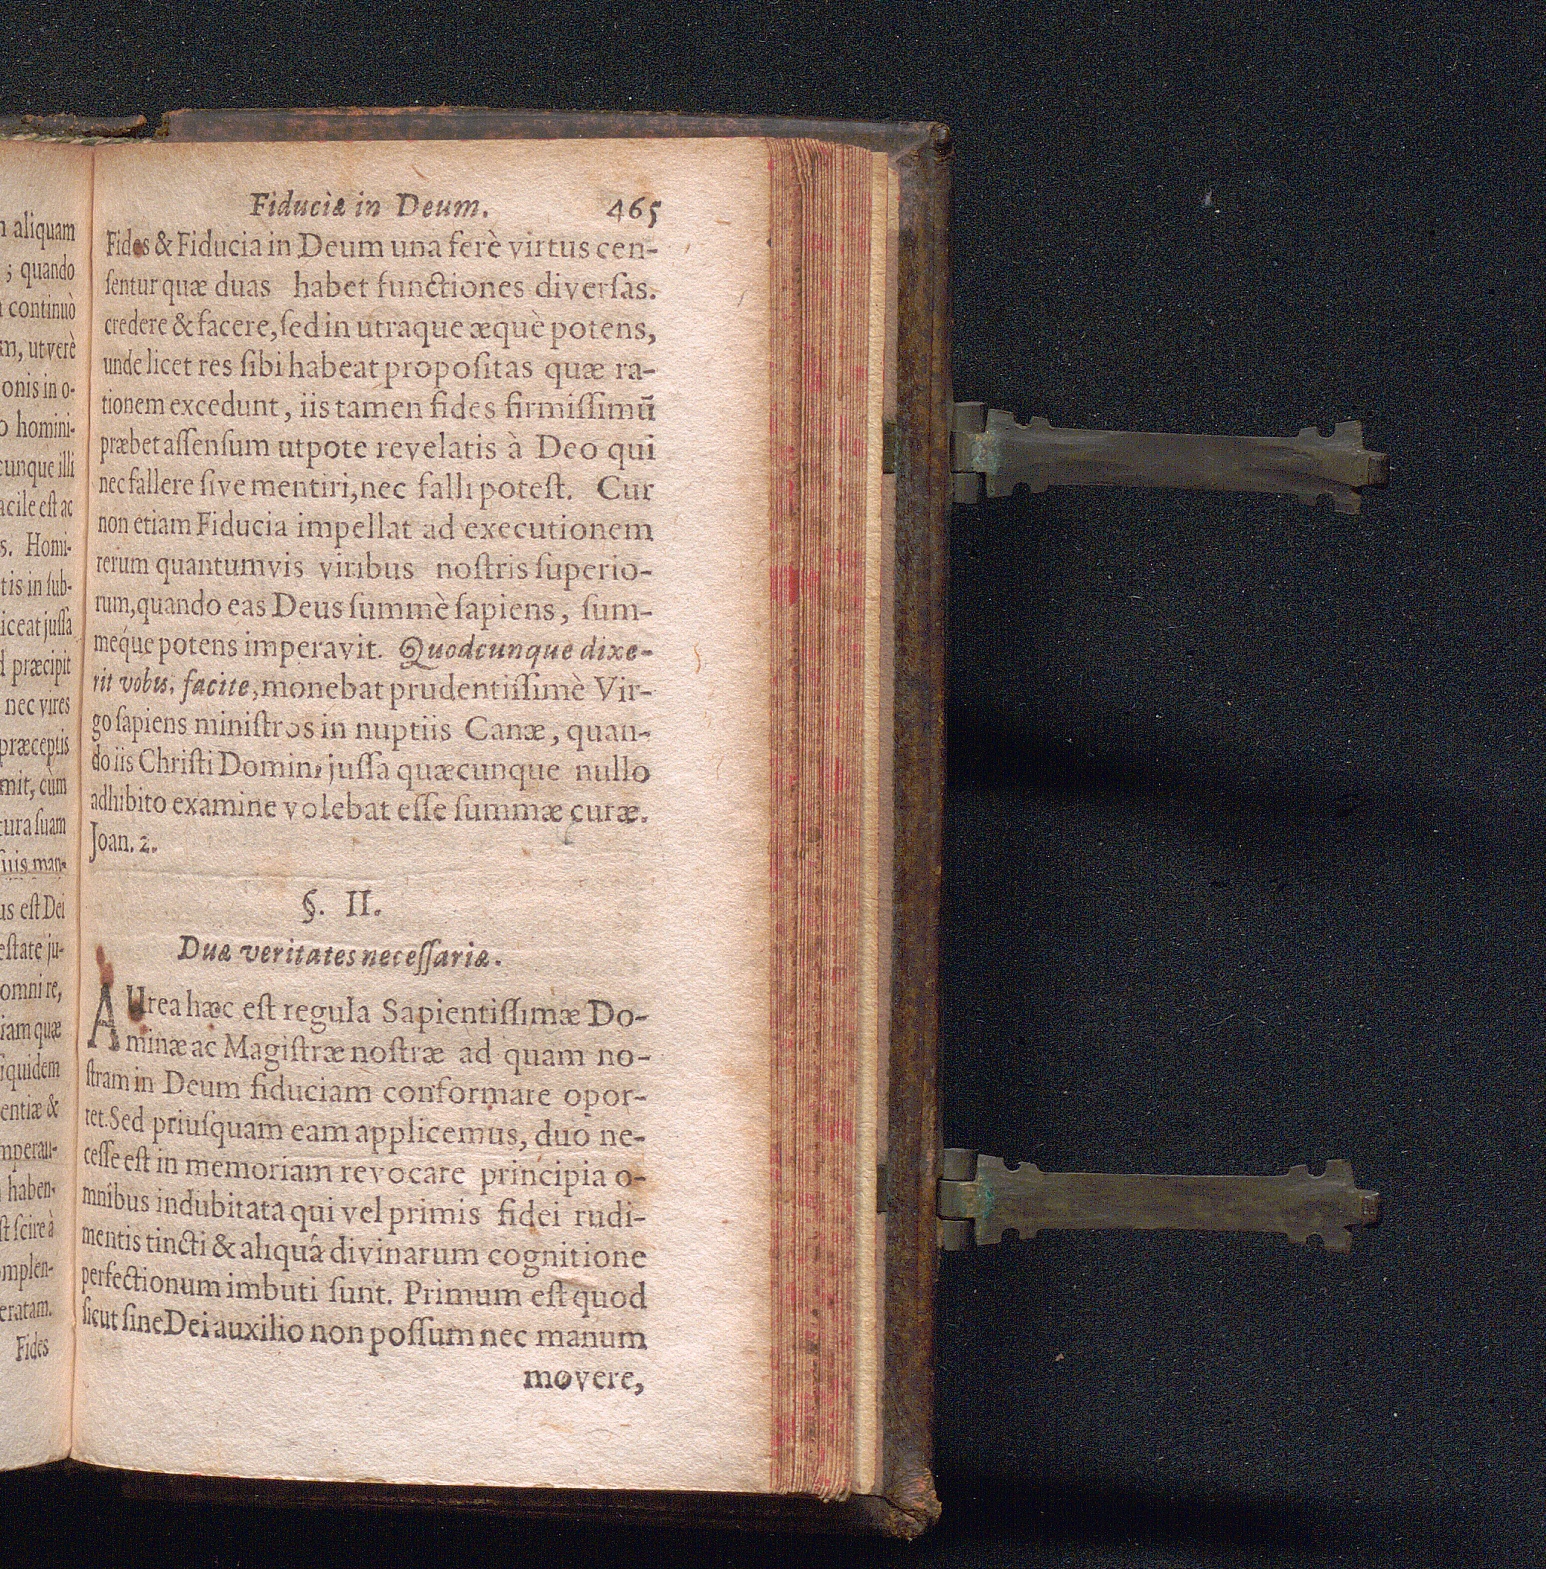 aliquam
; quando
continuò
utverè
onis in o-
homini-
cunque illi
facile est ac
Homi-
tis in sub-
jussa
præcipit
nec vires
præceptis
cùm
suam
suis man-
est Dei
ju-
omni re,
quæ
siquidem
&
haben-
scire à
Fides
Fiduciæ in Deum. 465
Fides & Fiducia in Deum una ferè virtus cen-
ſentur quæ duas habet functiones diverſas.
credere & facere, ſed in utraque æquè potens,
unde licet res ſibi habeat propoſitas quæ ra-
tionem excedunt, iis tamen fides firmiſſimũ
præbet aſſenſum utpote revelatis à Deo qui
nec fallere ſive mentiri, nec falli poteſt. Cur
non etiam Fiducia impellat ad executionem
rerum quantumvis viribus noſtris ſuperio-
rum, quando eas Deus ſummè ſapiens, ſum-
meque potens imperavit. Quodcunque dixe-
rit vobis, facite, monebat prudentiſſimè Vir-
go ſapiens miniſtros in nuptiis Canæ, quan-
do iis Chriſti Domini juſſa quæcunque nullo
adhibito examine volebat eſſe ſummæ curæ.
Joan. 2.
§. II.
Duæ veritates neceſſariæ.
AUrea hæc eſt regula Sapientiſſimæ Do-
minæ ac Magiſtræ noſtræ ad quam no-
ſtram in Deum fiduciam conformare opor-
tet. Sed priuſquam eam applicemus, duo ne-
ceſſe eſt in memoriam revocare principia o-
mnibus indubitata qui vel primis fidei rudi-
mentis tincti & aliquâ divinarum cognitione
perfectionum imbuti ſunt. Primum eſt quod
ſicut ſine Dei auxilio non poſſum nec manum
movere,